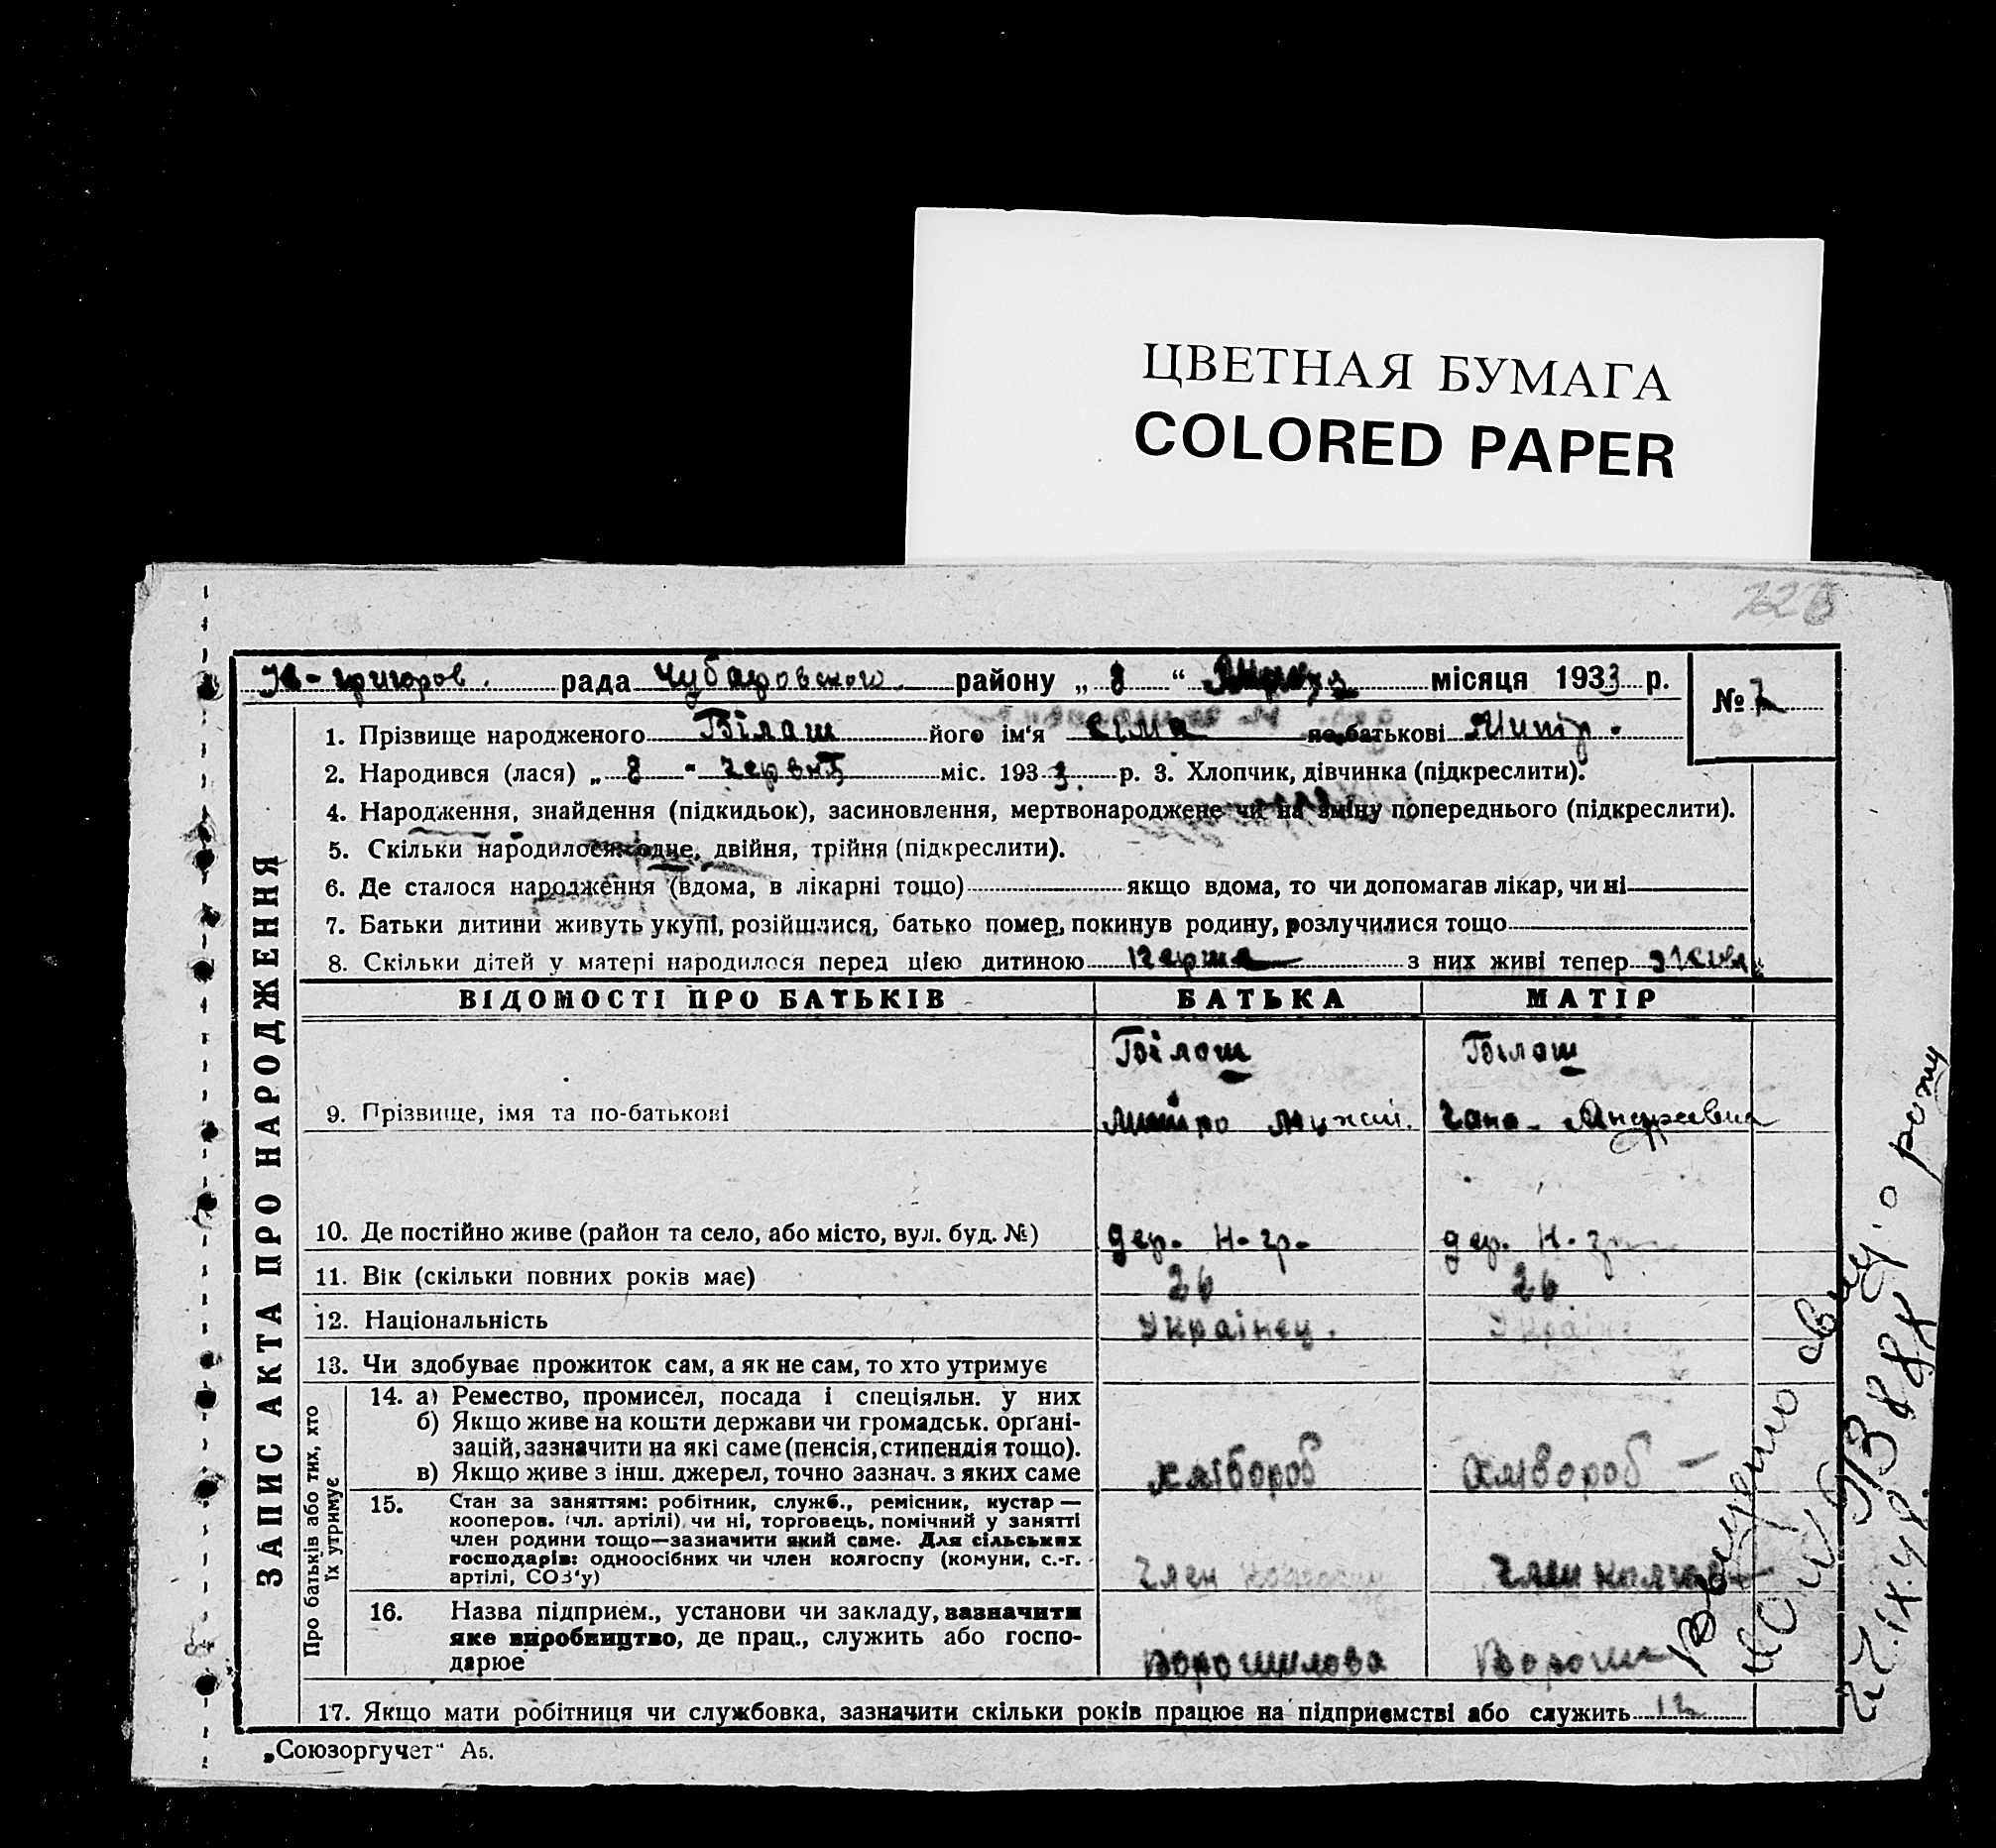 ЦВЕТНАЯ БУМАГА
COLORED PAPER
226
Н-григоров. рада Чубаровского району „ 8 “ місяця 1933 р.
№
ЗАПИС АКТА ПРО НАРОДЖЕННЯ
1. Прізвище народженого Білаш його ім'я по батькові Митр.
2. Народився (лася) „ 8 " червня міс. 1933 р. 3. Хлопчик, дівчинка (підкреслити).
4. Народження, знайдення (підкидьок), засиновлення, мертвонароджене чи на зміну попереднього (підкреслити).
5. Скільки народилося: одне, двійня, трійня (підкреслити).
6. Де сталося народження (вдома, в лікарні тощо) якщо вдома, то чи допомагав лікар, чи ні
7. Батьки дитини живуть укупі, розійшлися, батько помер, покинув родину, розлучилися тощо
8. Скільки дітей у матері народилося перед цією дитиною перша з них живі тепер жива
ВІДОМОСТІ ПРО БАТЬКІВ БАТЬКА МАТІР
Білаш Білаш
9. Прізвище, імя та по-батькові Андреевна
10. Де постійно живе (район та село, або місто, вул. буд. №) дер. Н-гр- дер. Н-
11. Вік (скільки повних років має) 26 26
12. Національність Українец. Україн
13. Чи здобуває прожиток сам, а як не сам, то хто утримує
Про батьків або тих, хто
їх утримує
14. а) Ремество, промисел, посада і спеціяльн. у них
б) Якщо живе на кошти держави чи громадськ. орґані-
зацій, зазначити на які саме (пенсія, стипендія тощо).
в) Якщо живе з інш. джерел, точно зазнач. з яких саме хлібороб хлібороб -
15. Стан за заняттям: робітник, служб., ремісник, кустар —
кооперов. (чл. артілі) чи ні, торговець, помічний у занятті
член родини тощо—зазначити який саме. Для сільських
господарів: одноосібних чи член колгоспу (комуни, с.-г.
артілі, СОЗ'у) член колгоспу член
16. Назва підприєм., установи чи закладу, зазначити
яке виробництво, де прац., служить або госпо-
дарює Ворошилова Ворошил
17. Якщо мати робітниця чи службовка, зазначити скільки років працює на підприємстві або служить
„Союзоргучет" А5.